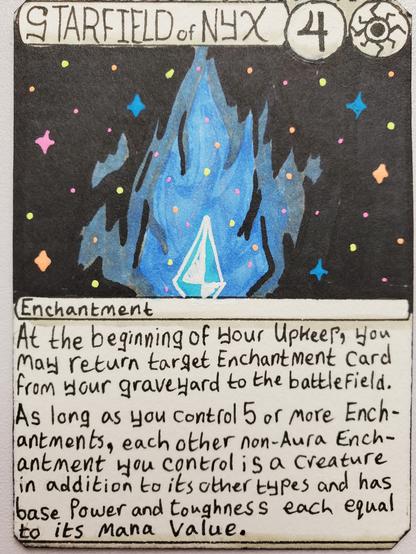 STARFIELD of NYX 4
Enchantment
At the beginning of your Upkeep, you
may return target Enchantment Card
from your graveyard to the battlefield.
As long as you control 5 or more Ench-
antments, each other non-Aura Ench-
antment you control is a Creature
in addition to its other types and has
base Power and toughness each equal
to its Mana Value.